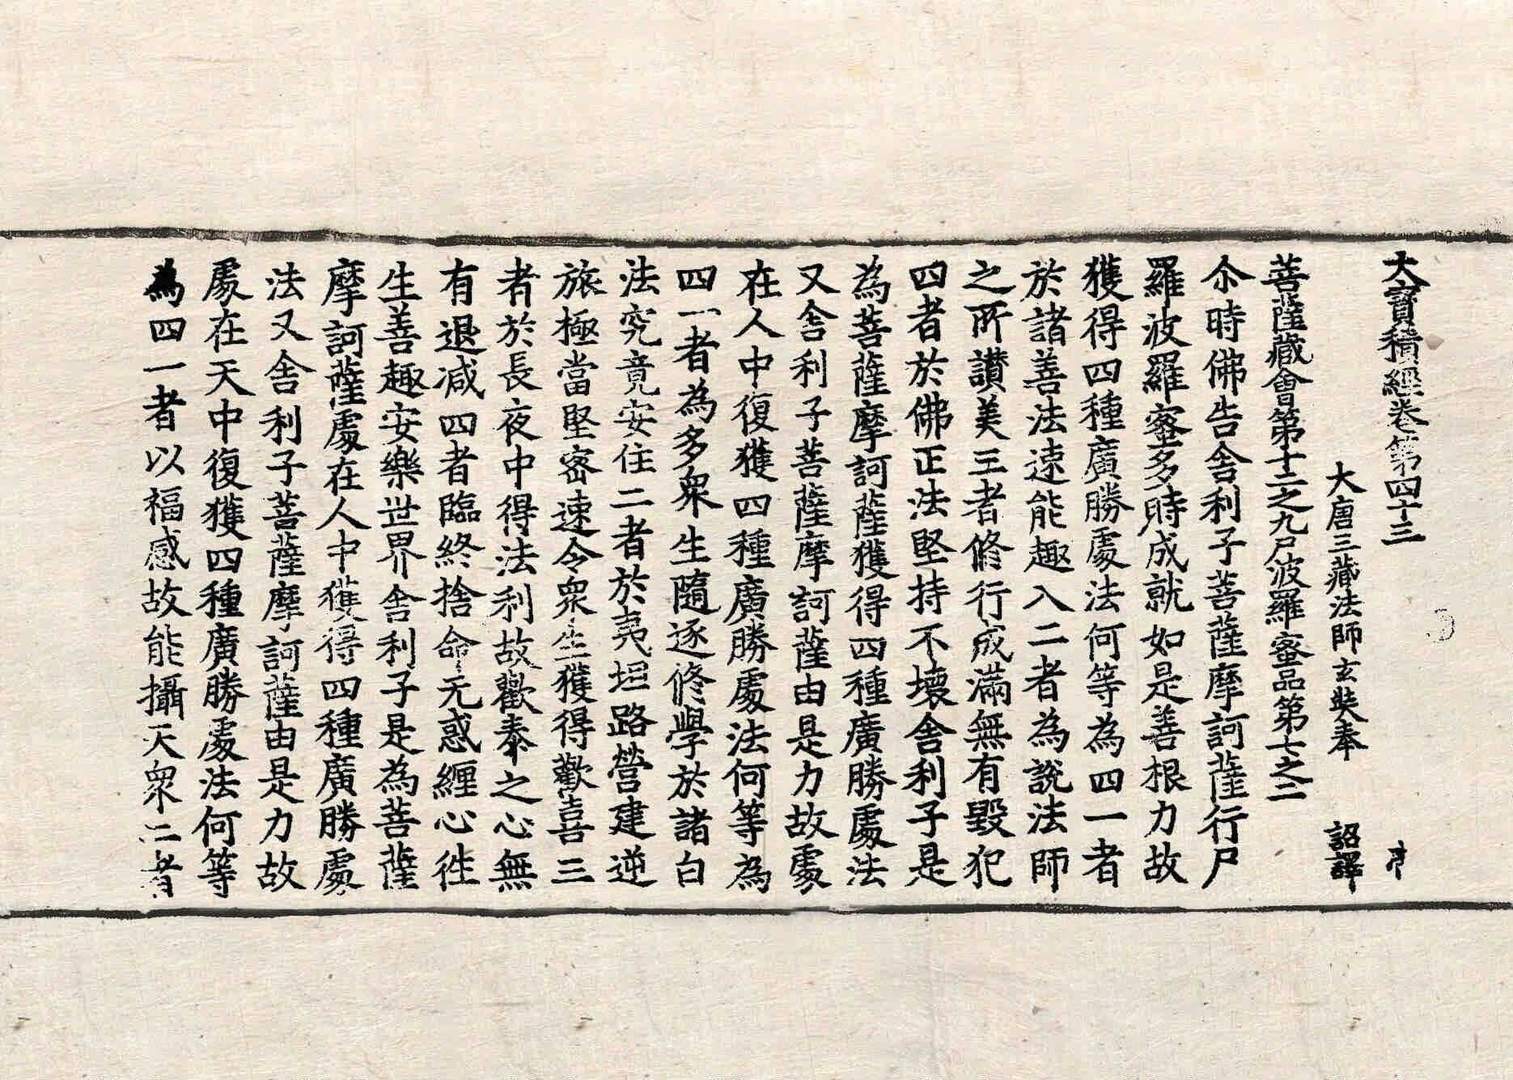 大寶積經卷第四十三
大唐三藏法師玄奘奉 詔譯
菩薩藏會第十二之九尸波羅蜜品第七之二
尒時佛告舍利子菩薩摩訶薩行尸
羅波羅蜜多時成就如是善根力故
獲得四種廣勝處法何等為四一者
於諸善法速能趣入二者為說法師
之所讃美三者修行成滿無有毀犯
四者於佛正法堅持不壞舍利子是
為菩薩摩訶薩獲得四種廣勝處法
又舍利子菩薩摩訶薩由是力故處
在人中復獲四種廣勝處法何等為
四一者為多衆生隨逐修學於諸白
法究竟安住二者於夷坦路營建逆
旅極當堅密速令衆生獲得歡喜三
者於長夜中得法利故歡泰之心無
有退减四者臨終捨命无惑纏心徃
生善趣安樂世界舍利子是為菩薩
摩訶薩處在人中獲得四種廣勝處
法又舍利子菩薩摩訶薩由是力故
處在天中復獲四種廣勝處法何等
為四一者以福感故能攝天衆二者